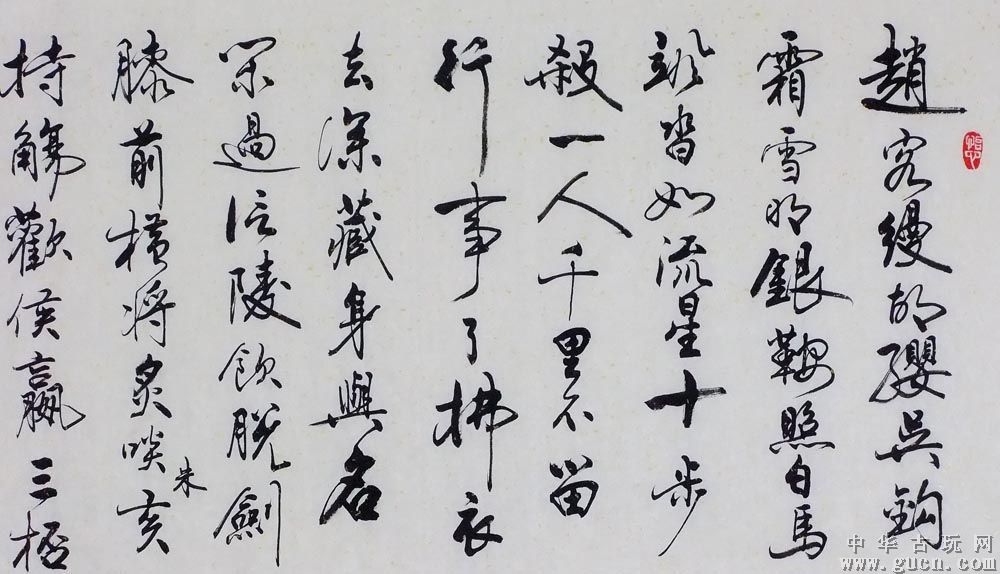 趙客縵胡纓吳鈎
霜雪明銀鞍照白馬
颯沓如流星十步
殺一人千里不留
行事了拂衣
去深藏身與名
閑過信陵飲脫劍
膝前橫將炙啖朱亥
持觴歡侯嬴三桮
中华古玩网
www.gucn.com